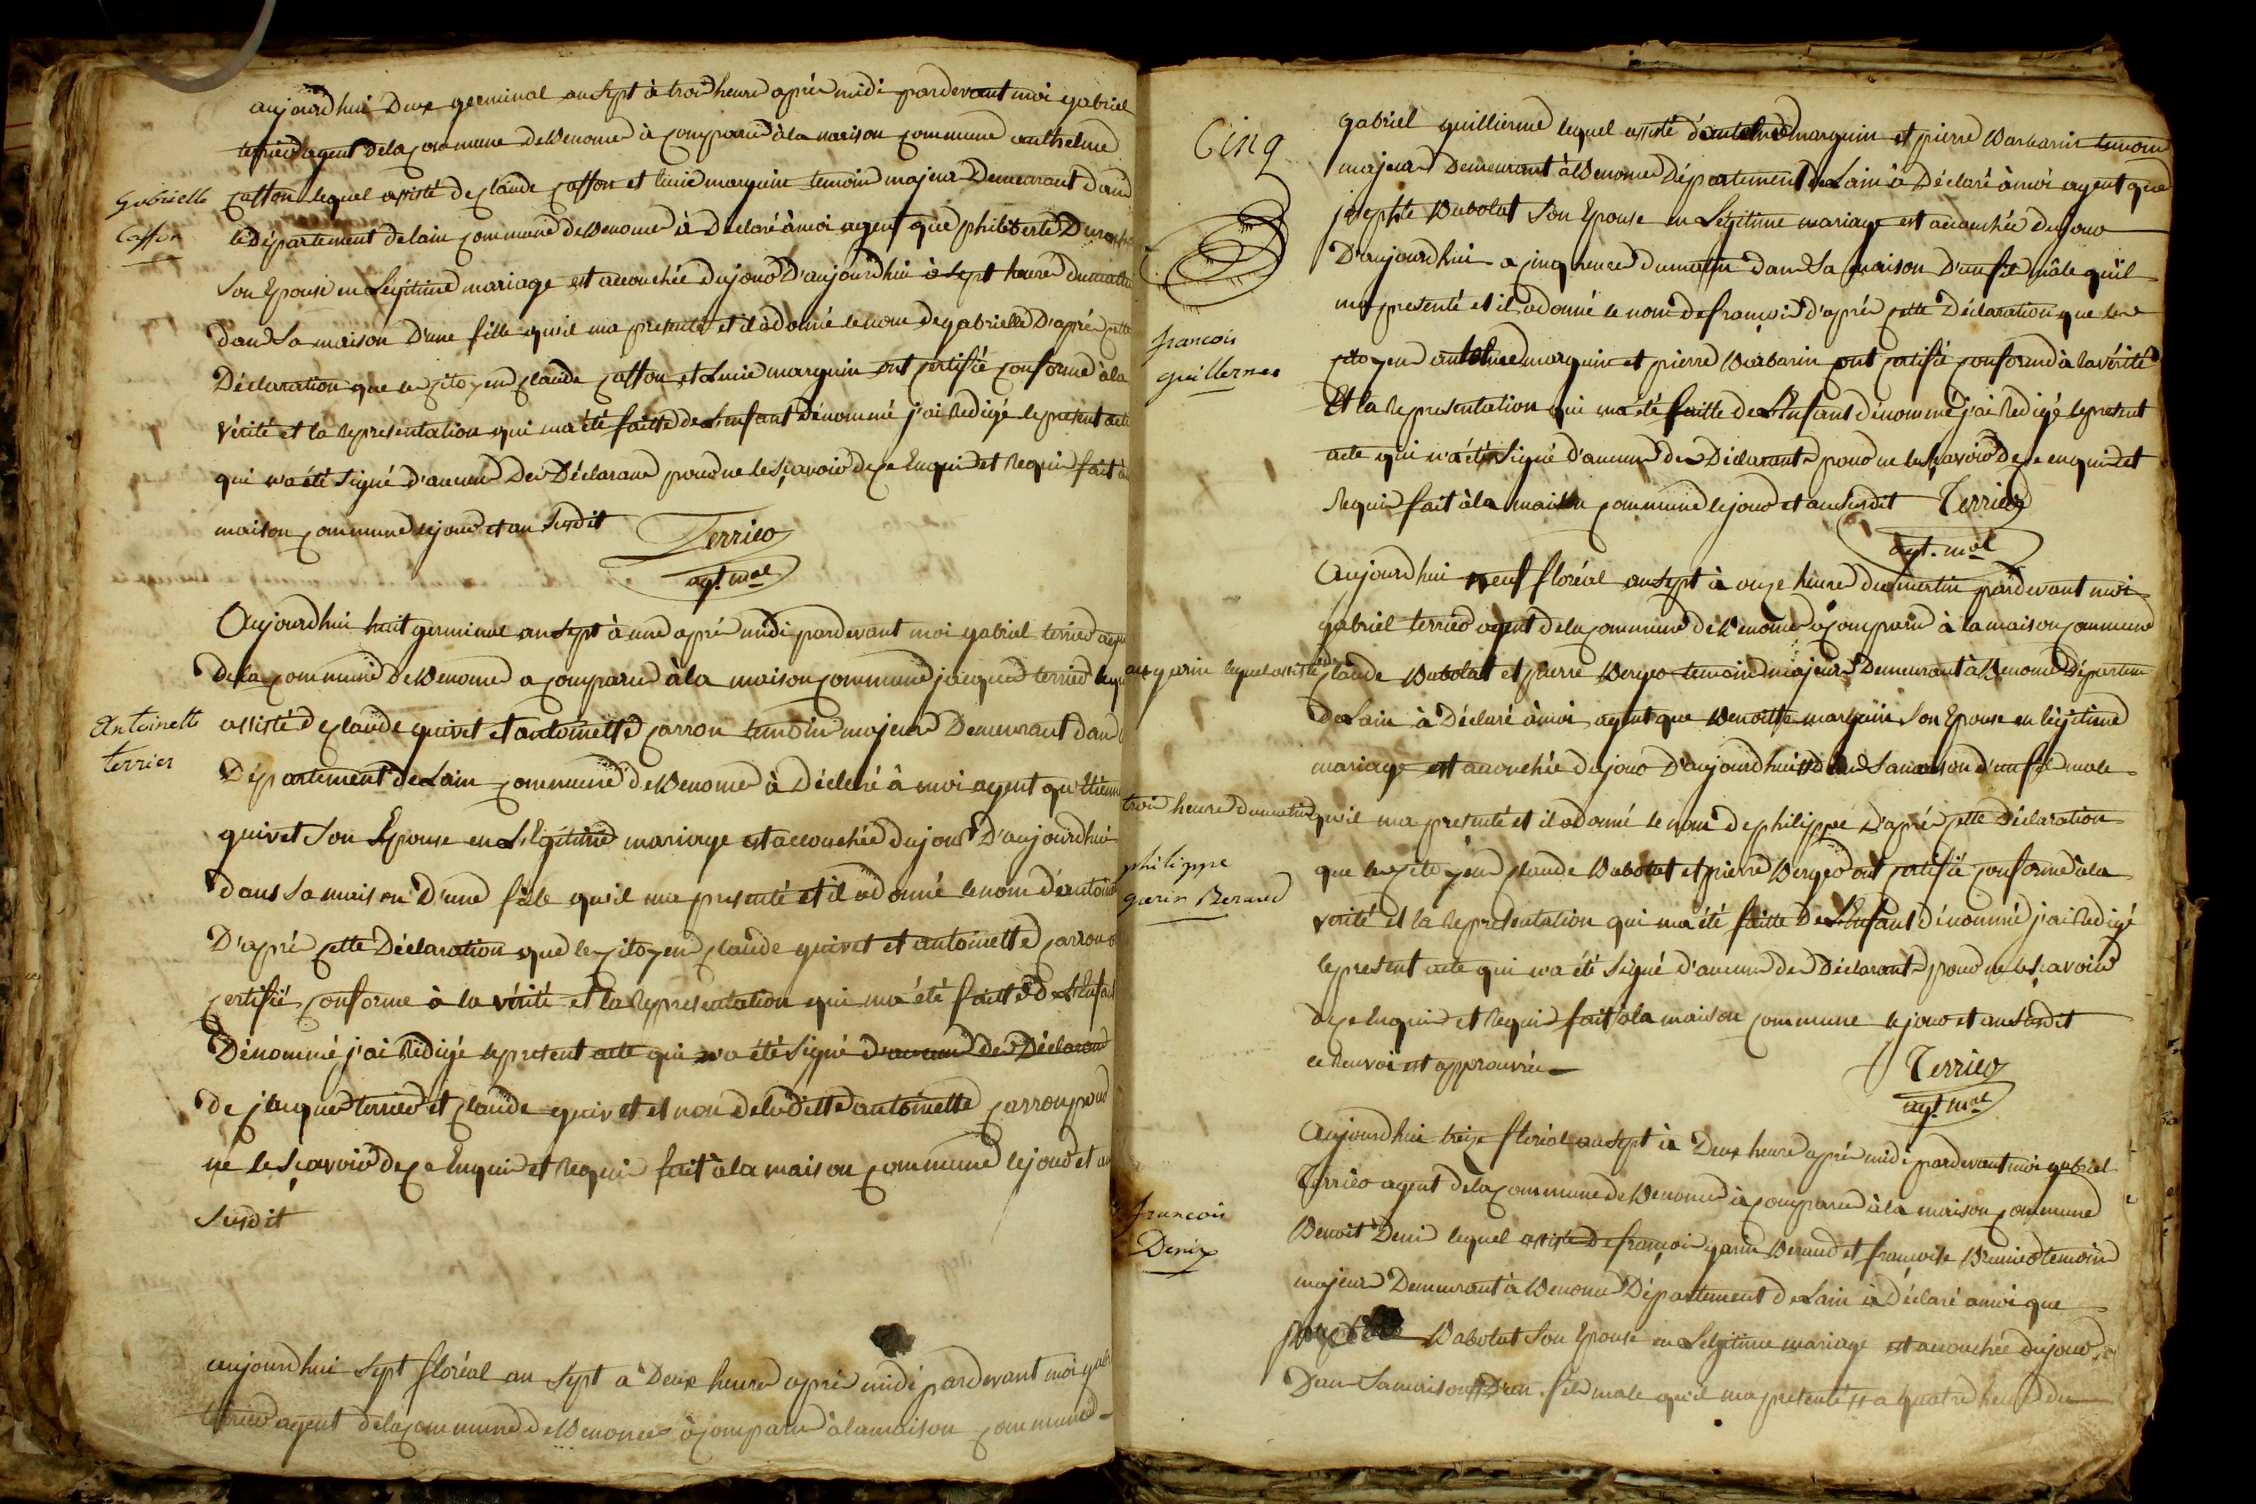 aujourd'hui Deux germinal an sept à trois heures après midi pardevant moi gabriel
terrier agent de la commune de Benonce à comparu à la maison commune anthelme
Gabrielle
Caffon
caffon lequel assisté de claude caffon et lucie marquin temoins majeurs Demeurant dans
le département de lain commune de Benonce à Déclaré à moi agent que philiberte
son Epouse en Légitime mariage est accouchée du jour D'aujourd'hui à sept heures du matin
dans sa maison D'une fille qu'il ma presenté et il à donné le nom de gabrielle D'après cette
Déclaration que les citoyens claude caffon et Lucie marquin ont certifié conforme à la
vérité et la representation qui ma été faitte de L'enfant Dénommé j'ai Redigé le present acte
qui n'a été signé d'aucuns Des Déclarans pour ne le sçavoir de ce Enquis et Requis fait à
maison commune le jour et an susdit
Terrier
agt. mal
Aujourd'hui huit germinal an sept à une après midi pardevant moi gabriel terrier
de la commune de Benonce a comparu à la maison commune jacques terrier
Antoinette
terrier
assisté de claude quivet et antoinette carron temoins majeurs Demeurant dans
Département de Lain commune de Benonce à Déclaré à moi agent
quivet son Epouse en Légitime mariage est accouchée du jour D'aujourd'hui
dans sa maison D'une fille qu'il ma presenté et il a donné le nom d'
D'après cette Déclaration que les citoyens claude quivet et antoinette carron
certifié conforme à la vérité et la representation qui ma été faitte de L'Enfant
Dénommé j'ai Redigé le present acte qui n'a été signé d'aucuns des Déclarans
de jacques terrier et claude quivet et non de laditte antoinette carron pour
ne le sçavoir de ce Enquis et Requis fait à la maison commune le jour et an
susdit
aujourd'hui sept floréal an sept à Deux heures après midi pardevant moi
terrier agent de la commune de Benonce à comparu à la maison commune
Cinq
gabriel guillierme lequel assisté d'antelme marquin et pierre Barbarin temoins
majeurs Demeurant à Benonce Département de Lain à Déclaré à moi agent que
josephte Babolat son Epouse en Légitime mariage est accouchée du jour
D'aujourd'hui a cinq heures du matin dans sa maison D'un fils mâle qu'il
ma presenté et il a donné le nom de françois d'après cette Déclaration que les
francois
guillermes
citoyens antelme marquin et pierre Barbarin ont certifié conforme à la vérité
Et la representation qui ma été faitte de L'Enfant dénommé j'ai Redigé le present
acte qui n'a été signé d'aucuns des Déclarants pour ne le sçavoir de ce enquis et
Requis fait à la maison commune le jour et an susdit Terrier
agt. mal
Aujourd'hui neuf floréal an sept à onze heures du matin pardevant moi
gabriel terrier agent de la commune de Benonce a comparu à la maison commune
garin lequel assisté de claude Babolat et pierre Berger temoins majeurs Demeurant à Benonce Département
de Lain à Déclaré à moi agent que Benoitte marquin son Epouse en légitime
mariage est accouchée du jour D'aujourd'hui dans sa maison d'un fils male
trois heures du matin qu'il ma presenté et il a donné le nom de philippe D'après cette Déclaration
philippe
garin Beraud
que les citoyens claude Babolat et pierre Berger ont certifié conforme à la
vérité et la representation qui ma été faitte de L'Enfant dénommé j'ai Redigé
le present acte qui n'a été signé d'aucuns des Déclarants pour ne le sçavoir
de ce Enquis et Requis fait à la maison commune le jour et an susdit
ce Renvoi est approuvée
Terrier
agt. mal
Aujourd'hui treize floréal an sept à Deux heures après midi pardevant moi gabriel
Terrier agent de la commune de Benonce à comparu à la maison commune
francois
Denix
Benoit Deni lequel assisté de françois garin Beraud et françoise temoins
majeurs Demeurant à Benonce Département de Lain à Déclaré a moi que
Babolat son Epouse en Légitime mariage est accouchée du jour
Dans sa maison D'un fils male qu'il ma presenté a quatre heures du